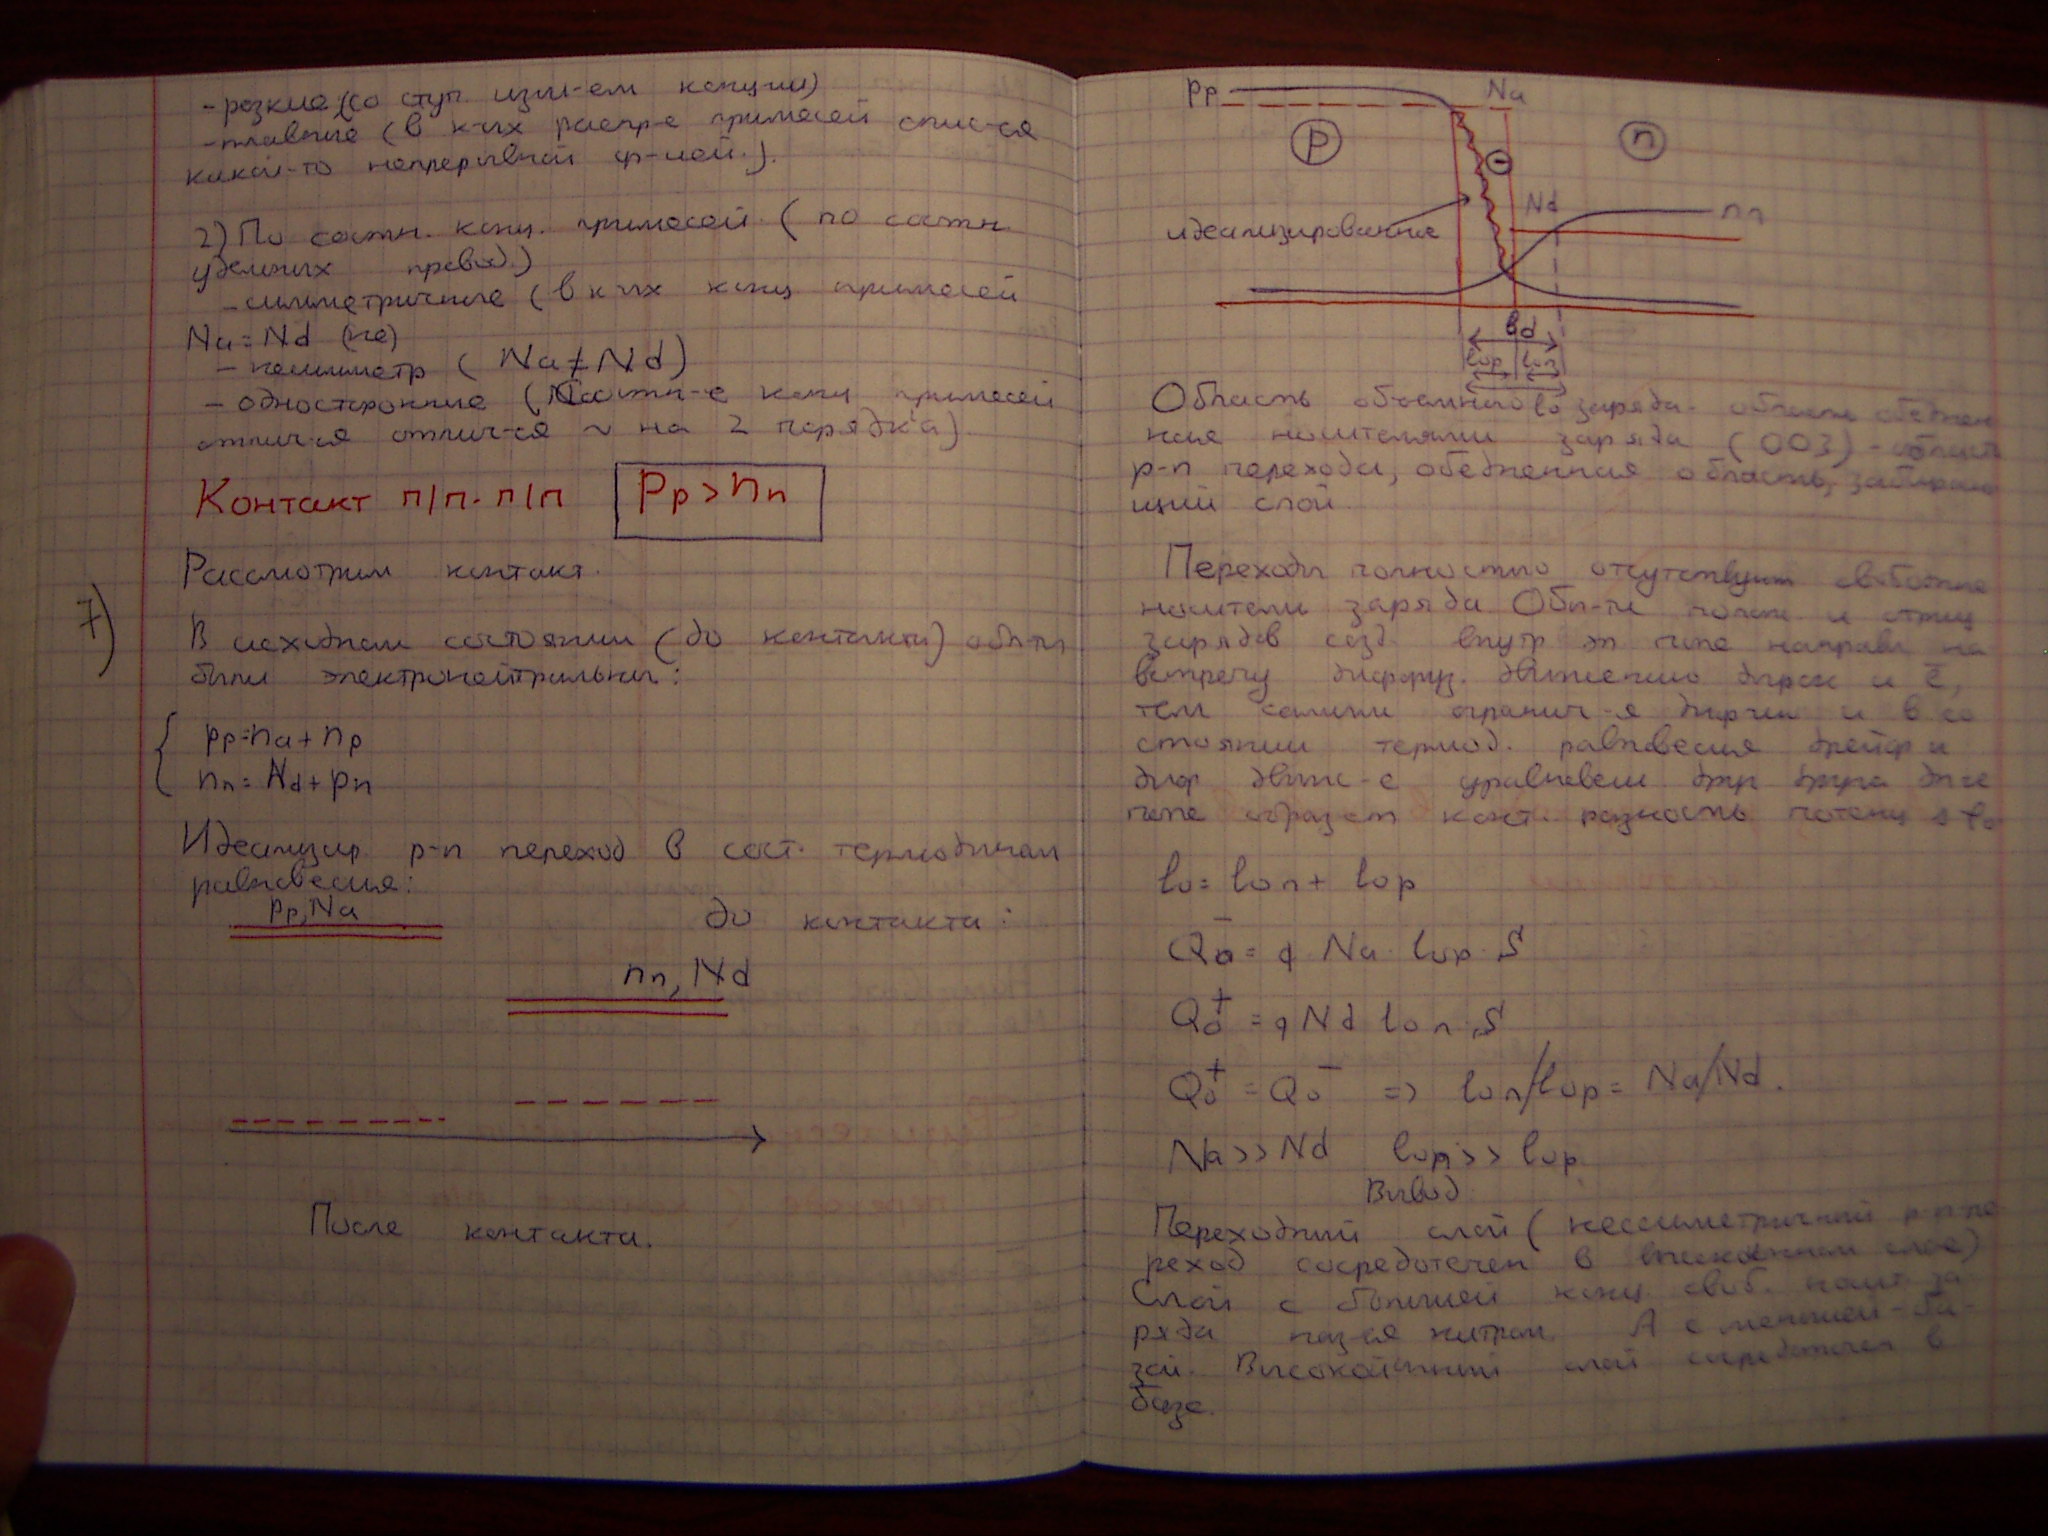 - резкие (со ступ. изм-ем конц-ии)
- плавные (в к-ых распр-е примесей опис-ся
какой-то непрерывной ф-ией.).
2) По соотн. конц. примесей. (по соотн.
удельных провод.)
- симметричные (в к-ых конц примесей
Na = Nd (не)
- несимметр (Na ≠ Nd)
- односторонние (Соотн-е конц примесей
отлич-ся отлич-ся ~ на 2 порядка)
Контакт п/п - п/п Pp > nn
Рассмотрим контакт.
7)
В исходном состоянии (до контакта) обл-ти
были электронейтральны:
pp = na + np
nn = Nd + pn
Идеализир. p-n переход в сост. термодинам
равновесия:
pp, Na
до контакта:
nn, Nd
После контакта.
Pp Na
p n
-
Nd nn
идеализирование
ld
lop lon
Область объемного заряда - область обеднен
ная носителями заряда (ООЗ) - область
p-n перехода, обедненная область, запираю
щий слой.
Переходы полностью отсутствуют свободные
носители заряда Обл-ти полож и отриц
зарядов созд. внутр эл поле направл на
встречу диффуз. движению дырок и ē,
тем самым огранич-я диффузии и в со
стоянии термод. равновесия дрейф и
диф движ-е уравновеш друг друга
поле образует конт. разность потенц
lo = lon + lop
Qo⁻ = q Na · lop · S
Qo⁺ = q Nd lon · S
Qo⁺ = Qo⁻ => lon/lop = Na/Nd.
Na >> Nd lon >> lop
Вывод
Переходный слой (нессиметричный p-n-пе
реход сосредоточен в слое)
Слой с большей конц своб. носит за
ряда наз-ся эмитром. А с меньшей - ба-
зой. слой сосредоточен в
базе.